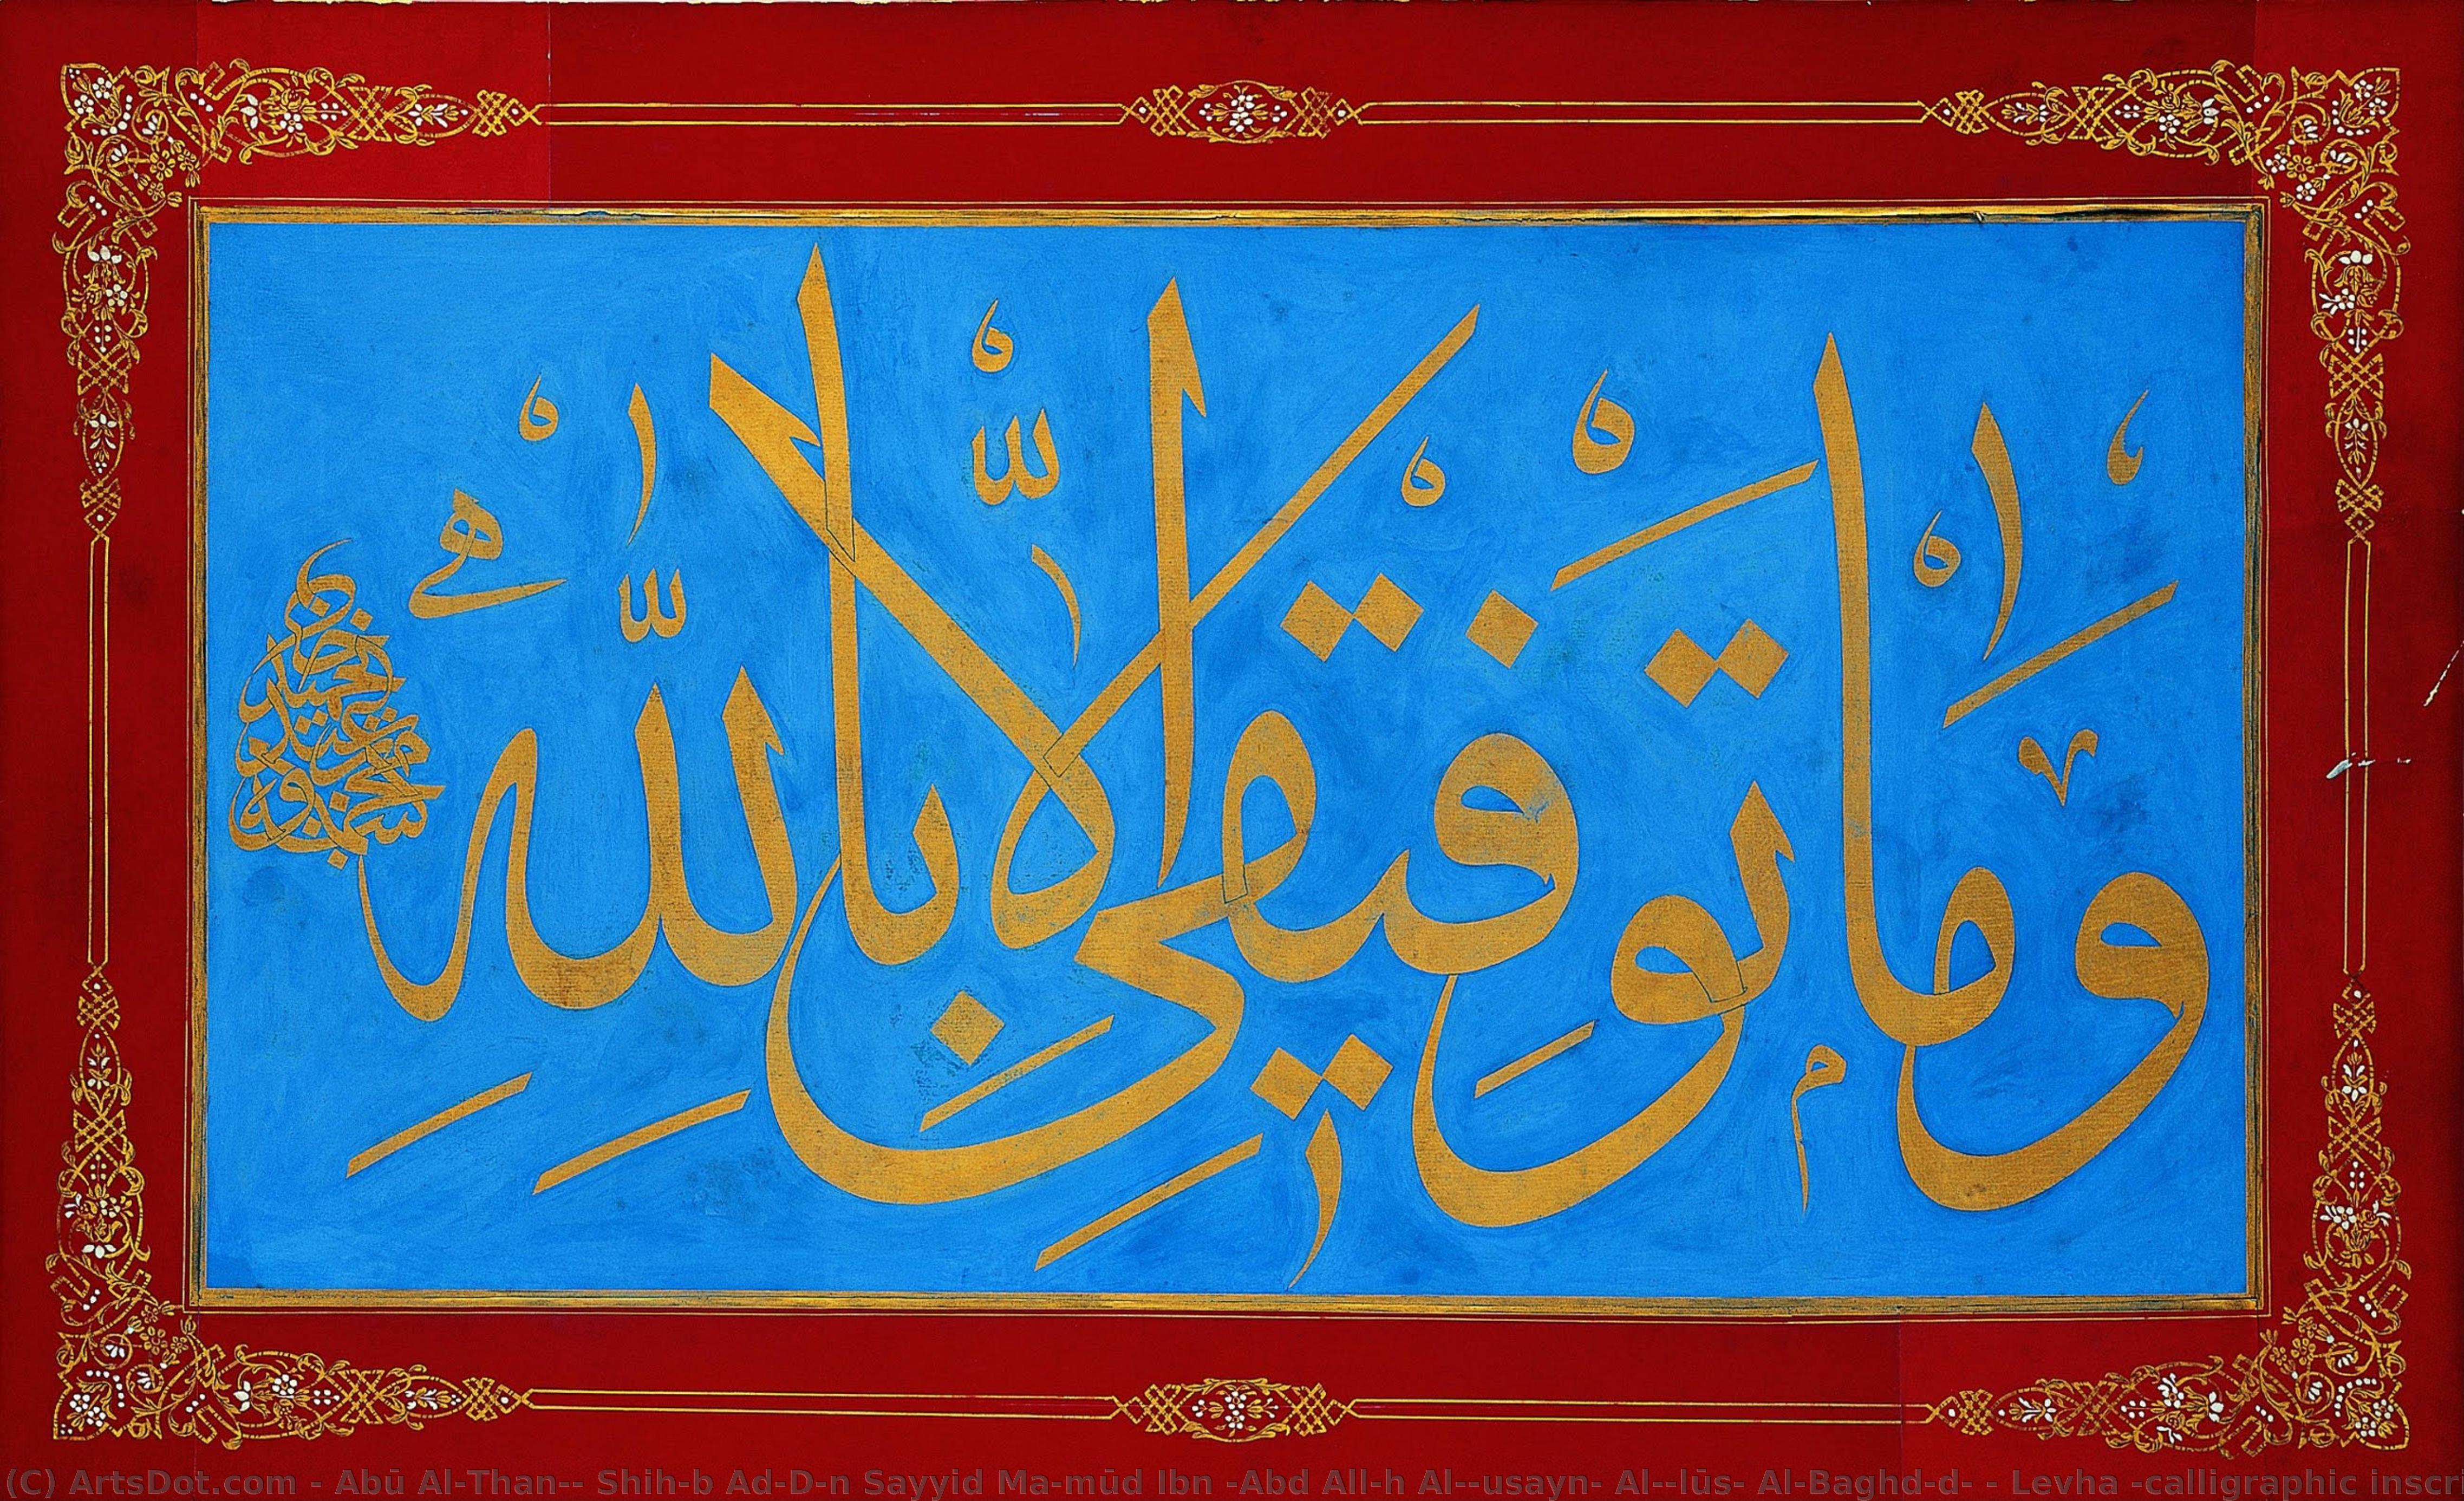 وَمَا تَوْفِيقِى اِلَّا بِاللّٰهِ
محمود بن عبد الحميد خان
(C) ArtsDot.com - Abū Al-Than-- Shih-b Ad-D-n Sayyid Ma-mūd Ibn -Abd All-h Al--usayn- Al--lūs- Al-Baghd-d- - Levha -calligraphic inscri